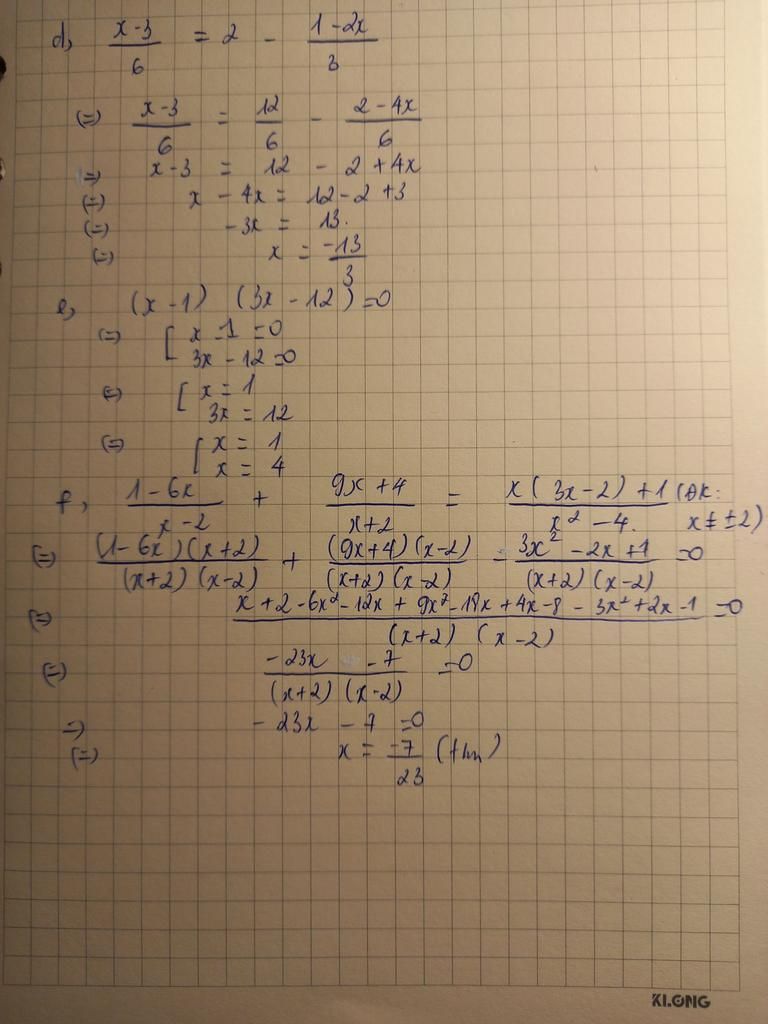 d, (x-3)/6 = 2 - (1-2x)/3
(=) (x-3)/6 = 12/6 - (2-4x)/6
(=) x-3 = 12 - 2 + 4x
(=) x - 4x = 12 - 2 + 3
(=) -3x = 13.
(=) x = -13/3
e, (x-1) (3x-12) = 0
(=) [ x-1 = 0
3x-12 = 0
(=) [ x = 1
3x = 12
(=) [ x = 1
x = 4
f, (1-6x)/(x-2) + (9x+4)/(x+2) = (x(3x-2)+1)/(x²-4.) (ĐK:
x ≠ ±2)
(=) ((1-6x)(x+2))/((x+2)(x-2)) + ((9x+4)(x-2))/((x+2)(x-2)) - (3x²-2x+1)/((x+2)(x-2)) = 0
(=) (x+2-6x²-12x+9x²-18x+4x-8-3x²+2x-1)/((x+2)(x-2)) = 0
(=) (-23x -7)/((x+2)(x-2)) = 0
=) -23x - 7 = 0
(=) x = -7/23 (tm)
KLONG